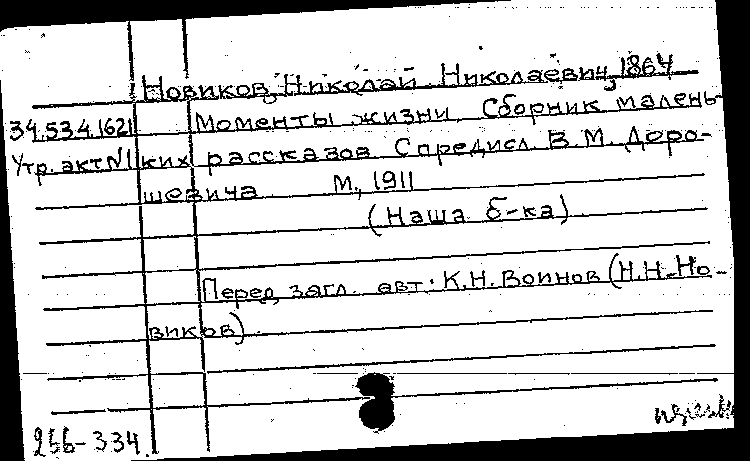 Новиков, Николай Николаевич, 1864
34.534.1621 Моменты жизни. Сборник малень-
Утр. акт №1 ких рассказов. С предисл. В.М. Доро-
шевича. М., 1911
(Наша б-ка).
Перед загл. авт.: К.Н. Воинов (Н.Н. Но-
виков).
256-334.